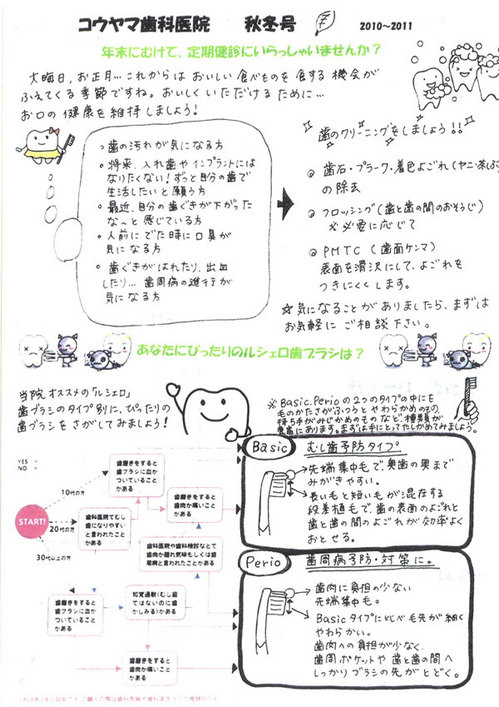 コウヤマ歯科医院 秋冬号 2010~2011
年末にむけて、定期健診にいらっしゃいませんか？
大晦日、お正月…これからは おいしい食べものを食する機会が
ふえてくる季節ですね。おいしくいただけるために…
お口の健康を維持しましょう！
・歯の汚れが気になる方
・将来、入れ歯やインプラントには
なりたくない！ずっと自分の歯で
生活したいと願う方
・最近、自分の歯ぐきが下がった
な〜と感じている方
・人前にでた時に口臭が
気になる方
・歯ぐきがはれたり、出血
したり… 歯周病の進行が
気になる方
歯のクリーニングをしましょう!!
歯石・プラーク・着色よごれ(ヤニ・茶しぶ)
の除去
フロッシング(歯と歯の間のおそうじ)
※必要に応じて
PMTC (歯面ケンマ)
表面を滑沢にして、よごれを
つきにくくします。
☆気になることがありましたら、まずは
お気軽に ご相談下さい。
あなたにぴったりのルシェロ歯ブラシは？
当院オススメの「ルシェロ」
歯ブラシのタイプ別に、ぴったりの
歯ブラシをさがしてみましょう！
※Basic.Perioの2つのタイプの中にも
毛のかたさがふつうとやわらかめのもの
持ち手がみじかめのものなど、種類が
豊富にあります。まずは手にとってたしかめてみましょう。
YES
NO
START!
10代の方
20代の方
30代以上の方
歯磨きをすると
歯ブラシに血が
ついていること
がある
歯磨きをすると
歯肉が痛いこと
がある
歯科医院でむし
歯になりやすい
と言われたこと
がある
歯科医院や歯科検診などで
歯肉が腫れ気味もしくは歯
周病と言われたことがある
歯磨きをすると
歯ブラシに血が
ついていること
がある
知覚過敏(むし歯
ではないのに歯
がしみる)がある
歯磨きをすると
歯肉が痛いこと
がある
Basic むし歯予防タイプ
先端集中毛で、奥歯の奥まで
みがきやすい。
長い毛と短い毛が混在する
段差植毛で、歯の表面のよごれと
歯と歯の間のよごれが効率よく
おとせる。
Perio 歯周病予防・対策に。
歯肉に負担の少ない
先端集中毛。
Basicタイプに比べ毛先が細く
やわらかい。
歯肉への負担が少なく、
歯周ポケットや歯と歯の間へ
しっかりブラシの先がとどく。